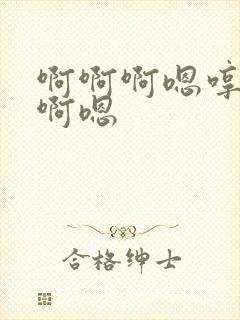 啊啊啊嗯哼
啊嗯
合格绅士